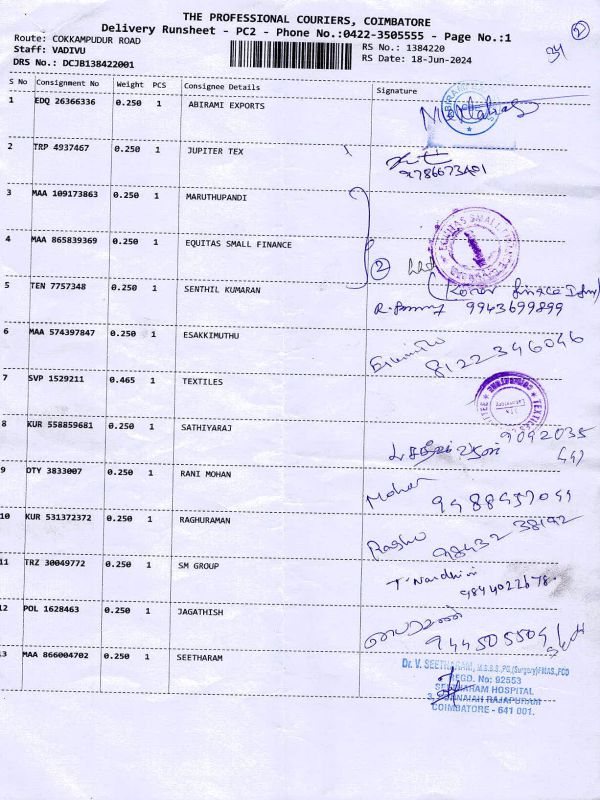 THE PROFESSIONAL COURIERS, COIMBATORE
Delivery Runsheet - PC2 - Phone No.:0422-3505555 - Page No.:1
Route: COKKAMPUDUR ROAD
Staff: VADIVU
DRS No.: DCJB138422001
RS No.: 1384220
RS Date: 18-Jun-2024
2
S No Consignment No Weight PCS Consignee Details Signature
1 EDQ 26366336 0.250 1 ABIRAMI EXPORTS
2 TRP 4937467 0.250 1 JUPITER TEX
9786673401
3 MAA 109173863 0.250 1 MARUTHUPANDI
4 MAA 865839369 0.250 1 EQUITAS SMALL FINANCE
EQUITAS SMALL FINANCE
2
5 TEN 7757348 0.250 1 SENTHIL KUMARAN
9943699899
6 MAA 574397847 0.250 1 ESAKKIMUTHU
8122346046
7 SVP 1529211 0.465 1 TEXTILES
8 KUR 558859681 0.250 1 SATHIYARAJ
9092035
9 DTY 3833007 0.250 1 RANI MOHAN
Mohan
10 KUR 531372372 0.250 1 RAGHURAMAN
Raghu 98432 38192
11 TRZ 30049772 0.250 1 SM GROUP
9894022678
12 POL 1628463 0.250 1 JAGATHISH
9445055049
13 MAA 866004702 0.250 1 SEETHARAM
Dr. V. SEETHARAM, M.B.B.S.,PG.(Surgery)FMAS.,FCD
REGD. No: 92553
SEETHARAM HOSPITAL
RAJAPURAM
COIMBATORE - 641 001.